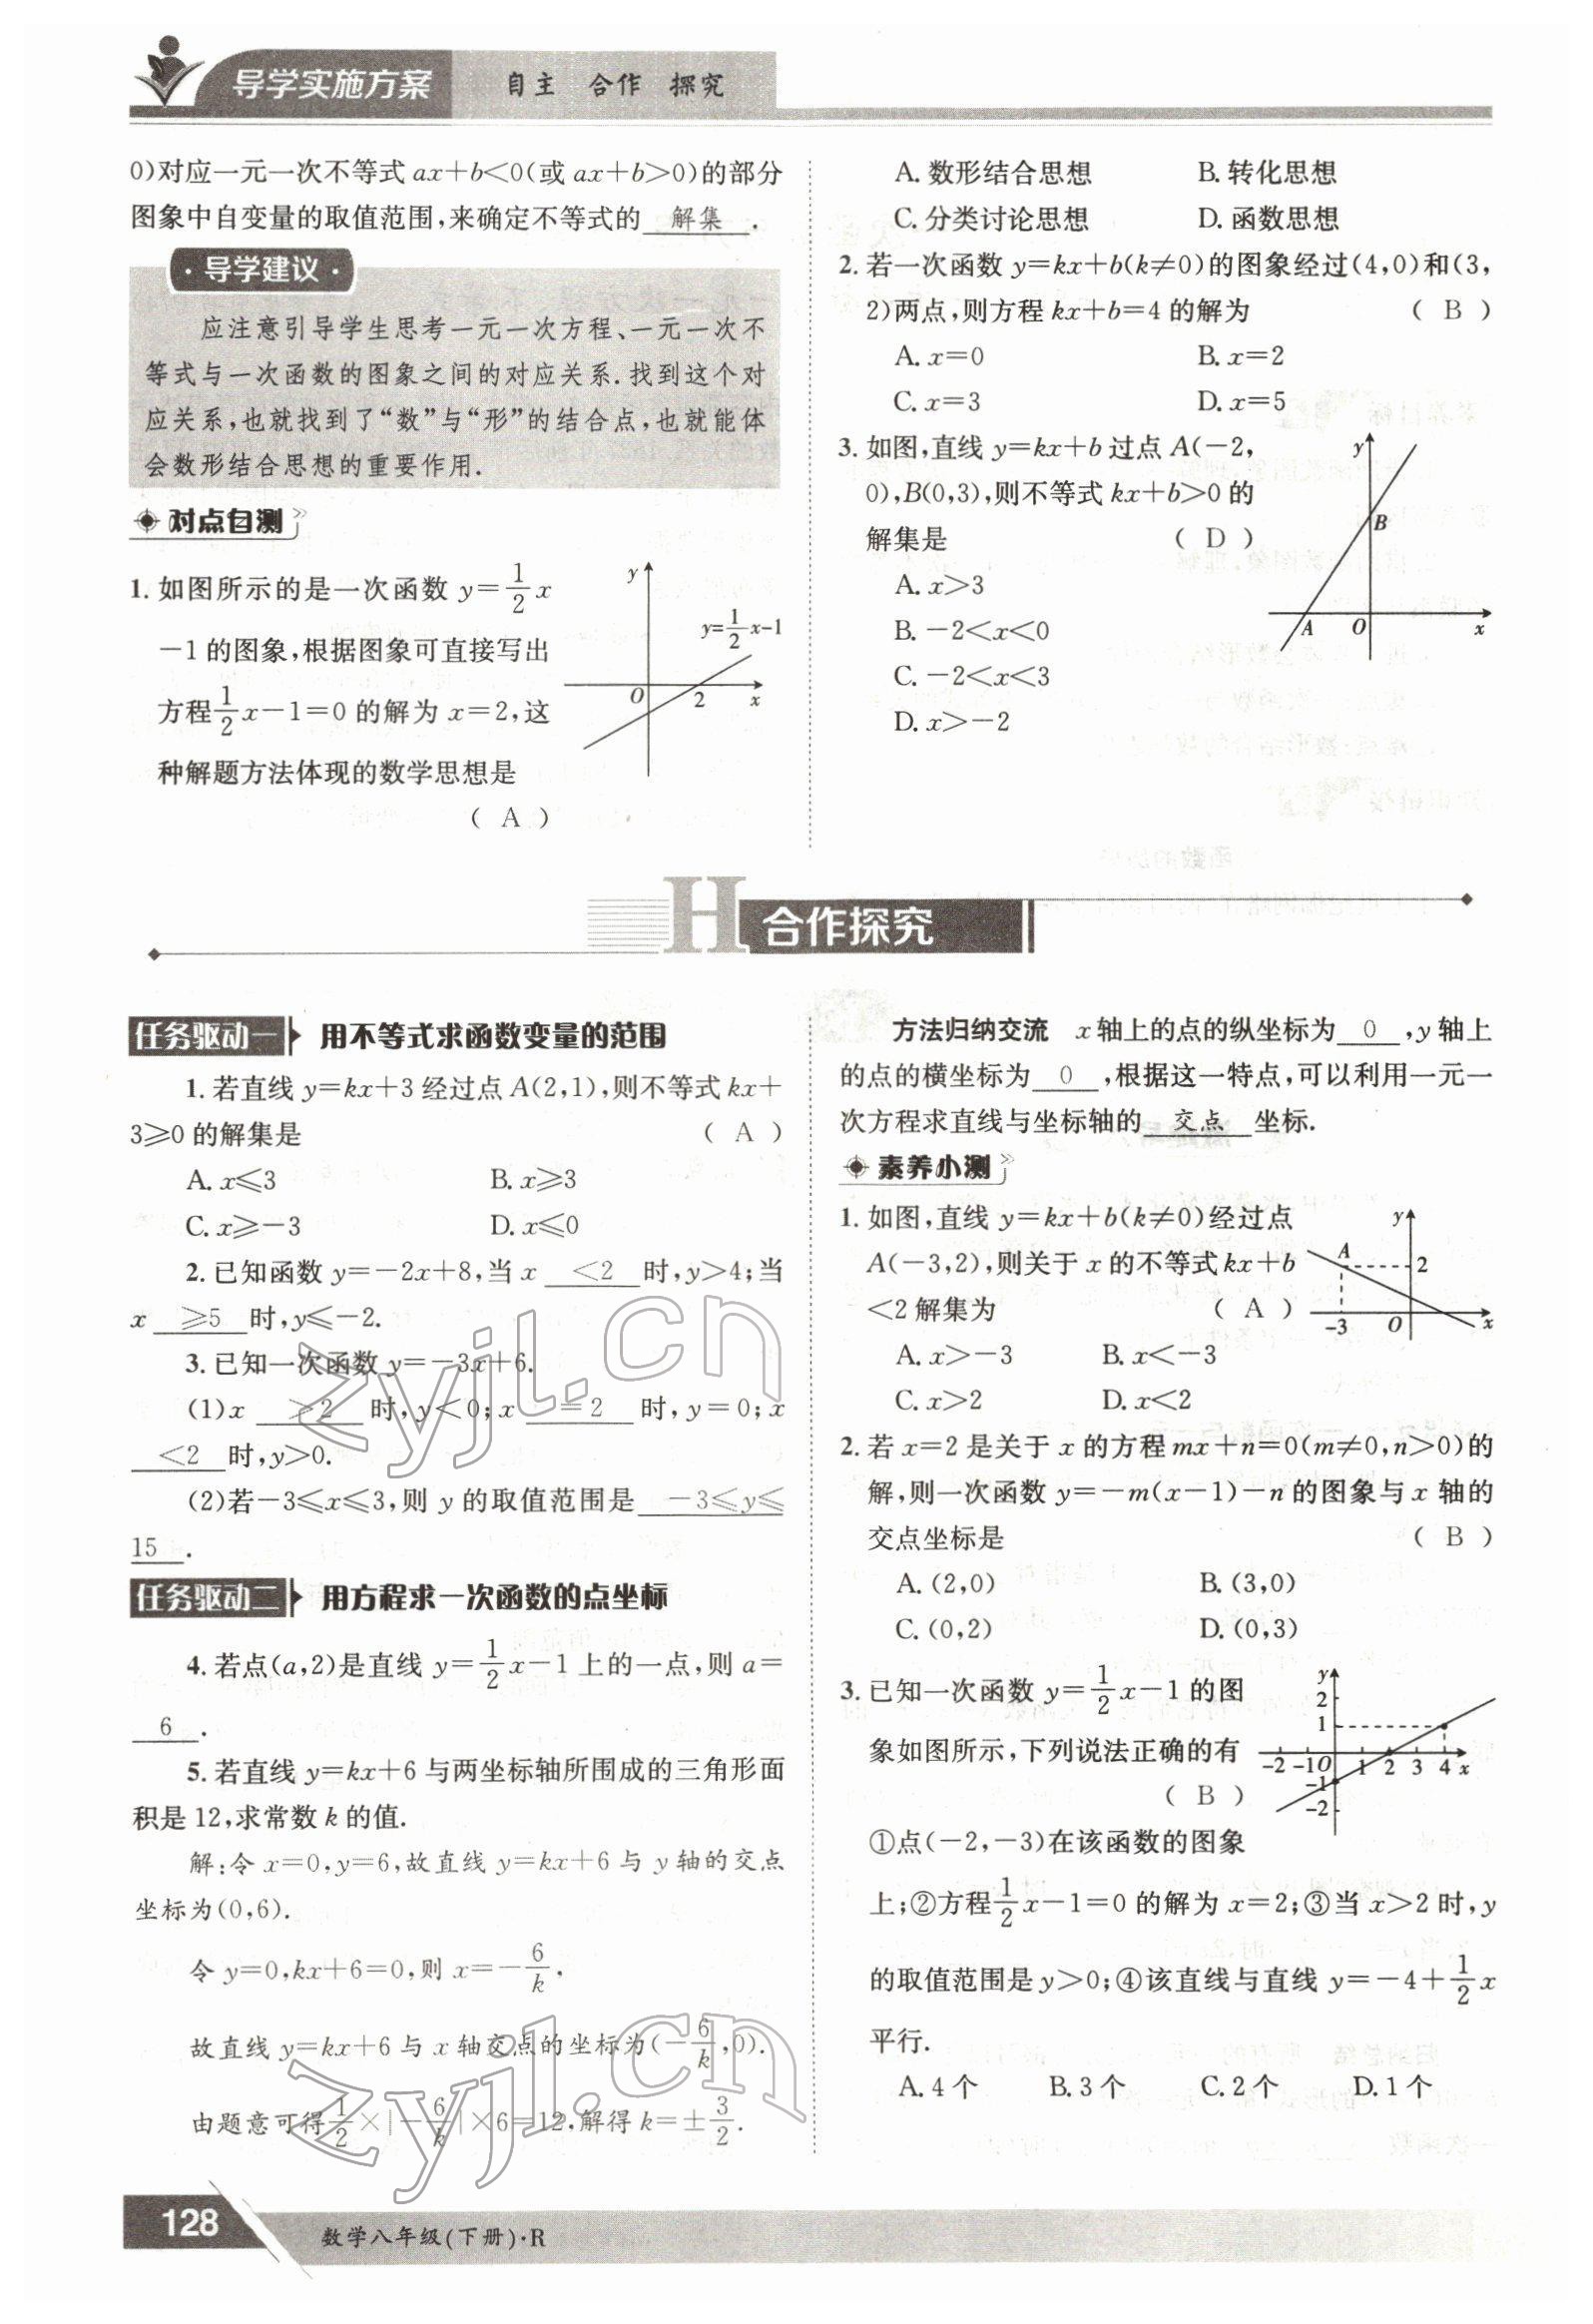 导学实施方案 自主 合作 探究
0)对应一元一次不等式 ax+b<0(或 ax+b>0)的部分
图象中自变量的取值范围,来确定不等式的 解集 .
·导学建议·
应注意引导学生思考一元一次方程、一元一次不
等式与一次函数的图象之间的对应关系.找到这个对
应关系,也就找到了“数”与“形”的结合点,也就能体
会数形结合思想的重要作用.
对点自测
1. 如图所示的是一次函数 y=1/2 x
-1 的图象,根据图象可直接写出
方程 1/2 x-1=0 的解为 x=2,这
种解题方法体现的数学思想是
( A )
y
y=1/2 x-1
O 2 x
A. 数形结合思想 B. 转化思想
C. 分类讨论思想 D. 函数思想
2. 若一次函数 y=kx+b(k≠0)的图象经过(4,0)和(3,
2)两点,则方程 kx+b=4 的解为 ( B )
A. x=0 B. x=2
C. x=3 D. x=5
3. 如图,直线 y=kx+b 过点 A(-2,
0),B(0,3),则不等式 kx+b>0 的
解集是 ( D )
A. x>3
B. -2<x<0
C. -2<x<3
D. x>-2
y
B
A O x
H 合作探究
任务驱动一 用不等式求函数变量的范围
1. 若直线 y=kx+3 经过点 A(2,1),则不等式 kx+
3≥0 的解集是 ( A )
A. x≤3 B. x≥3
C. x≥-3 D. x≤0
2. 已知函数 y=-2x+8,当 x <2 时,y>4;当
x ≥5 时,y≤-2.
3. 已知一次函数 y=-3x+6.
(1)x >2 时,y<0;x =2 时,y=0;x
<2 时,y>0.
(2)若-3≤x≤3,则 y 的取值范围是 -3≤y≤
15 .
任务驱动二 用方程求一次函数的点坐标
4. 若点(a,2)是直线 y=1/2 x-1 上的一点,则 a=
6 .
5. 若直线 y=kx+6 与两坐标轴所围成的三角形面
积是 12,求常数 k 的值.
解:令 x=0,y=6,故直线 y=kx+6 与 y 轴的交点
坐标为(0,6).
令 y=0,kx+6=0,则 x=-6/k,
故直线 y=kx+6 与 x 轴交点的坐标为(-6/k,0).
由题意可得 1/2×|-6/k|×6=12,解得 k=±3/2.
方法归纳交流 x 轴上的点的纵坐标为 0 ,y 轴上
的点的横坐标为 0 ,根据这一特点,可以利用一元一
次方程求直线与坐标轴的 交点 坐标.
素养小测
1. 如图,直线 y=kx+b(k≠0)经过点
A(-3,2),则关于 x 的不等式 kx+b
<2 解集为 ( A )
A. x>-3 B. x<-3
C. x>2 D. x<2
y
A
2
-3 O x
2. 若 x=2 是关于 x 的方程 mx+n=0(m≠0,n>0)的
解,则一次函数 y=-m(x-1)-n 的图象与 x 轴的
交点坐标是 ( B )
A. (2,0) B. (3,0)
C. (0,2) D. (0,3)
3. 已知一次函数 y=1/2 x-1 的图
象如图所示,下列说法正确的有
( B )
y
2
1
-2 -1 O 1 2 3 4 x
-1
-2
①点(-2,-3)在该函数的图象
上;②方程 1/2 x-1=0 的解为 x=2;③当 x>2 时,y
的取值范围是 y>0;④该直线与直线 y=-4+1/2 x
平行.
A. 4 个 B. 3 个 C. 2 个 D. 1 个
zyjl.cn
zyjl.cn
128 数学八年级(下册)·R